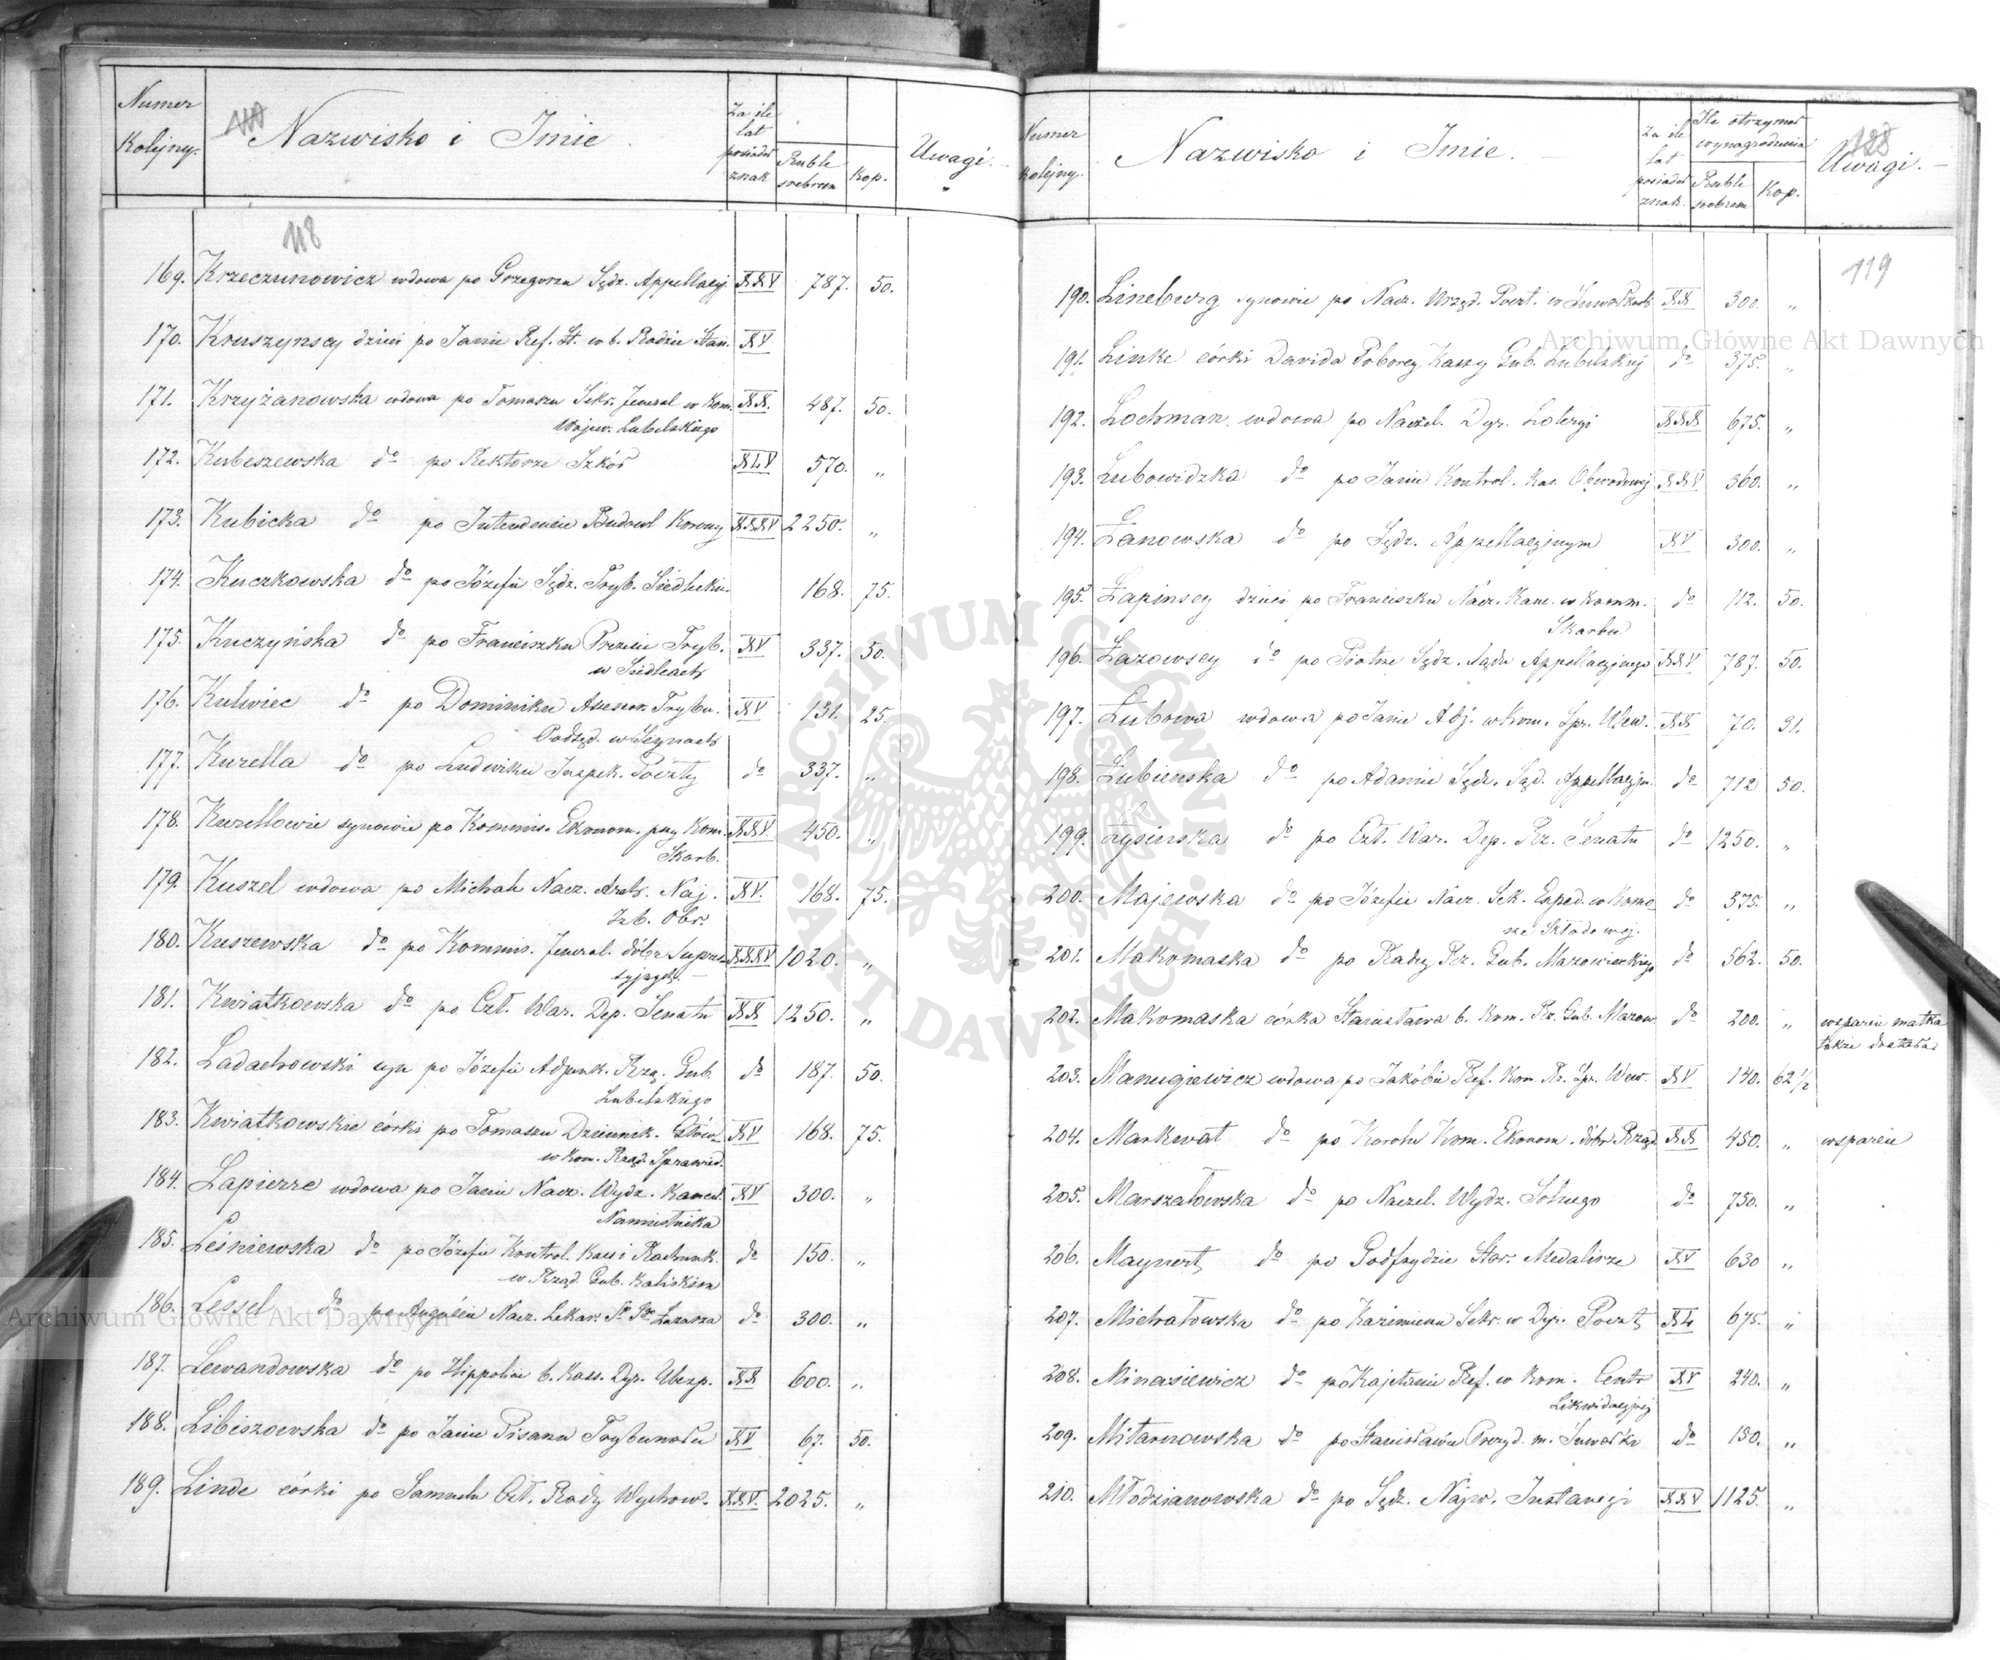 Numer Kolejny.
Nazwisko i Imie.
Za ile lat posiadał znak
Ruble srebrem
Kop.
Uwagi.
118
169. Krzeczunowicz wdowa po Grzegorzu Sędz. Appellacyj. XXV 787. 50.
170. Kruszynscy dzieci po Janie Ref. St. w b. Radzie Stan. XV
171. Krzyżanowska wdowa po Tomaszu Sekr. Jeneral w Kom. XX. 487. 50.
Wojew. Lubelskiego
172. Kubeszewska do po Rektorze Szkół XLV 570. "
173. Kubicka do po Intendencie Budowl Korony XXXV 2250. "
174. Kuczkowska do po Józefie Sędz. Tryb. Siedleckim. 168. 75.
175. Kuczyńska do po Franciszku Prezesie Tryb. XV 337. 50.
w Siedlcach
176. Kulwiec do po Dominiku Assesor. Trybu. XV 131. 25.
Podsęd. w Sejnach
177. Kurella do po Ludwiku Inspek. Poczty do 337. "
178. Kurellowie synowie po Kommis. Ekonom. przy Kom. XXV. 450. "
Skarb.
179. Kuszel wdowa po Michale Nacz. Arch. Naj. XV. 168. 75.
Izb. Obr.
180. Kuszewska do po Kommis. Jeneral. dóbr Supre XXXV 1020. "
syjnych.
181. Kwiatkowska do po Czł. War. Dep. Senatu XX 1250. "
182. Ladachowski syn po Józefie Adjunk. Rzą. Gub. do 187. 50.
Lubelskiego
183. Kwiatkowskie córki po Tomaszu Dziennik. Główn. XV 168. 75.
w Kom. Rząd. Sprawied.
184. Lapierre wdowa po Janie Nacz. Wydz. Kancel. XV 300. "
Namiestnika
185. Leśniewska do po Józefie Kontrol. Kass i Rachunk. do 150. "
w Rząd. Gub. Kaliskim
186. Lessel do po Auguście Nacz. Lekar. Sp. Sgo Łazarza do 300. "
187. Lewandowska do po Hippolicie b. Kass. Dyr. Ubezp. XX 600. "
188. Libiszowska do po Janie Pisarzu Trybunału XV 67. 50.
189. Linde córki po Samuelu Czł. Rady Wychow. XXV. 2025. "
Numer Kolejny.
Nazwisko i Imie.
Za ile lat posiadał znak.
Ile otrzymał wynagrodzenia
Ruble srebrem
Kop.
Uwagi.
119
190. Lineburg synowie po Nacz. Urzęd. Poczt. w Suwałkach XX 300. "
191. Linke córki Dawida Poborcy Kassy Gub. Lubelskiej do 375. "
192. Lochman wdowa po Naczel. Dyr. Loteryi XXX 675. "
193. Lubowidzka do po Janie Kontrol. Kas. Obwodowej XXV 360. "
194. Łanowska do po Sędz. Appellacyjnym XV 300. "
195. Łapinscy dzieci po Franciszku Nacz. Kanc. w Komm. do 112. 50.
Skarbu
196. Łazowscy do po Piotrze Sędz. Sądu Appellacyjnego XXV 787. 50.
197. Łubowa wdowa po Janie Adj. w Kom. Spr. Wew. XX 70. 31.
198. Łubienska do po Adamie Sędz. Sąd. Appellacyjn. do 712 50.
199. Łysinska do po Czł. War. Dep. Rz. Senatu do 1250. "
200. Majewska do po Józefie Nacz. Sek. Exped. w Komo- do 375. "
rze Składowej.
201. Makomaska do po Radcy Rz. Gub. Mazowieckiego do 562. 50.
202. Makomaska córka Stanisława b. Kom. Rz. Gub. Mazow. do 200. " wsparcie matka
także dostała
203. Manugiewicz wdowa po Jakóbie Ref. Kom. Rz. Spr. Wew. XV 140. 62 1/2
204. Markwat do po Karolu Kom. Ekonom. dóbr Rząd. XX 450. " wsparcie
205. Marszałowska do po Naczel. Wydz. Solnego do 750. "
206. Maynert do po Godfrydzie Star. Medalierze XV 630 "
207. Michałowska do po Kazimierzu Sekr. w Dyr. Poczt XL 675. "
208. Minasiewicz do po Kajetanie Ref. w Kom. Centr XV 240. "
Likwidacyjnej
209. Mitarnowska do po Stanisławie Prezyd. m. Suwałk do 150. "
210. Młodzianowska do po Sędz. Najw. Instancyi XXV 1125. "
Archiwum Główne Akt Dawnych
Archiwum Główne Akt Dawnych
ARCHIWUM GŁÓWNE AKT DAWNYCH